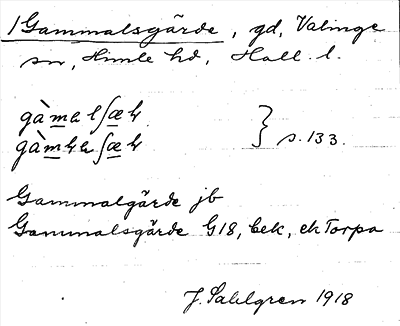 1 Gammalsgärde, gd, Valinge
sn, Himle hd, Hall. l.
} s. 133.
Gammalgärde jb
Gammalsgärde G18, bek, ek Torpa
J. Sahlgren 1918